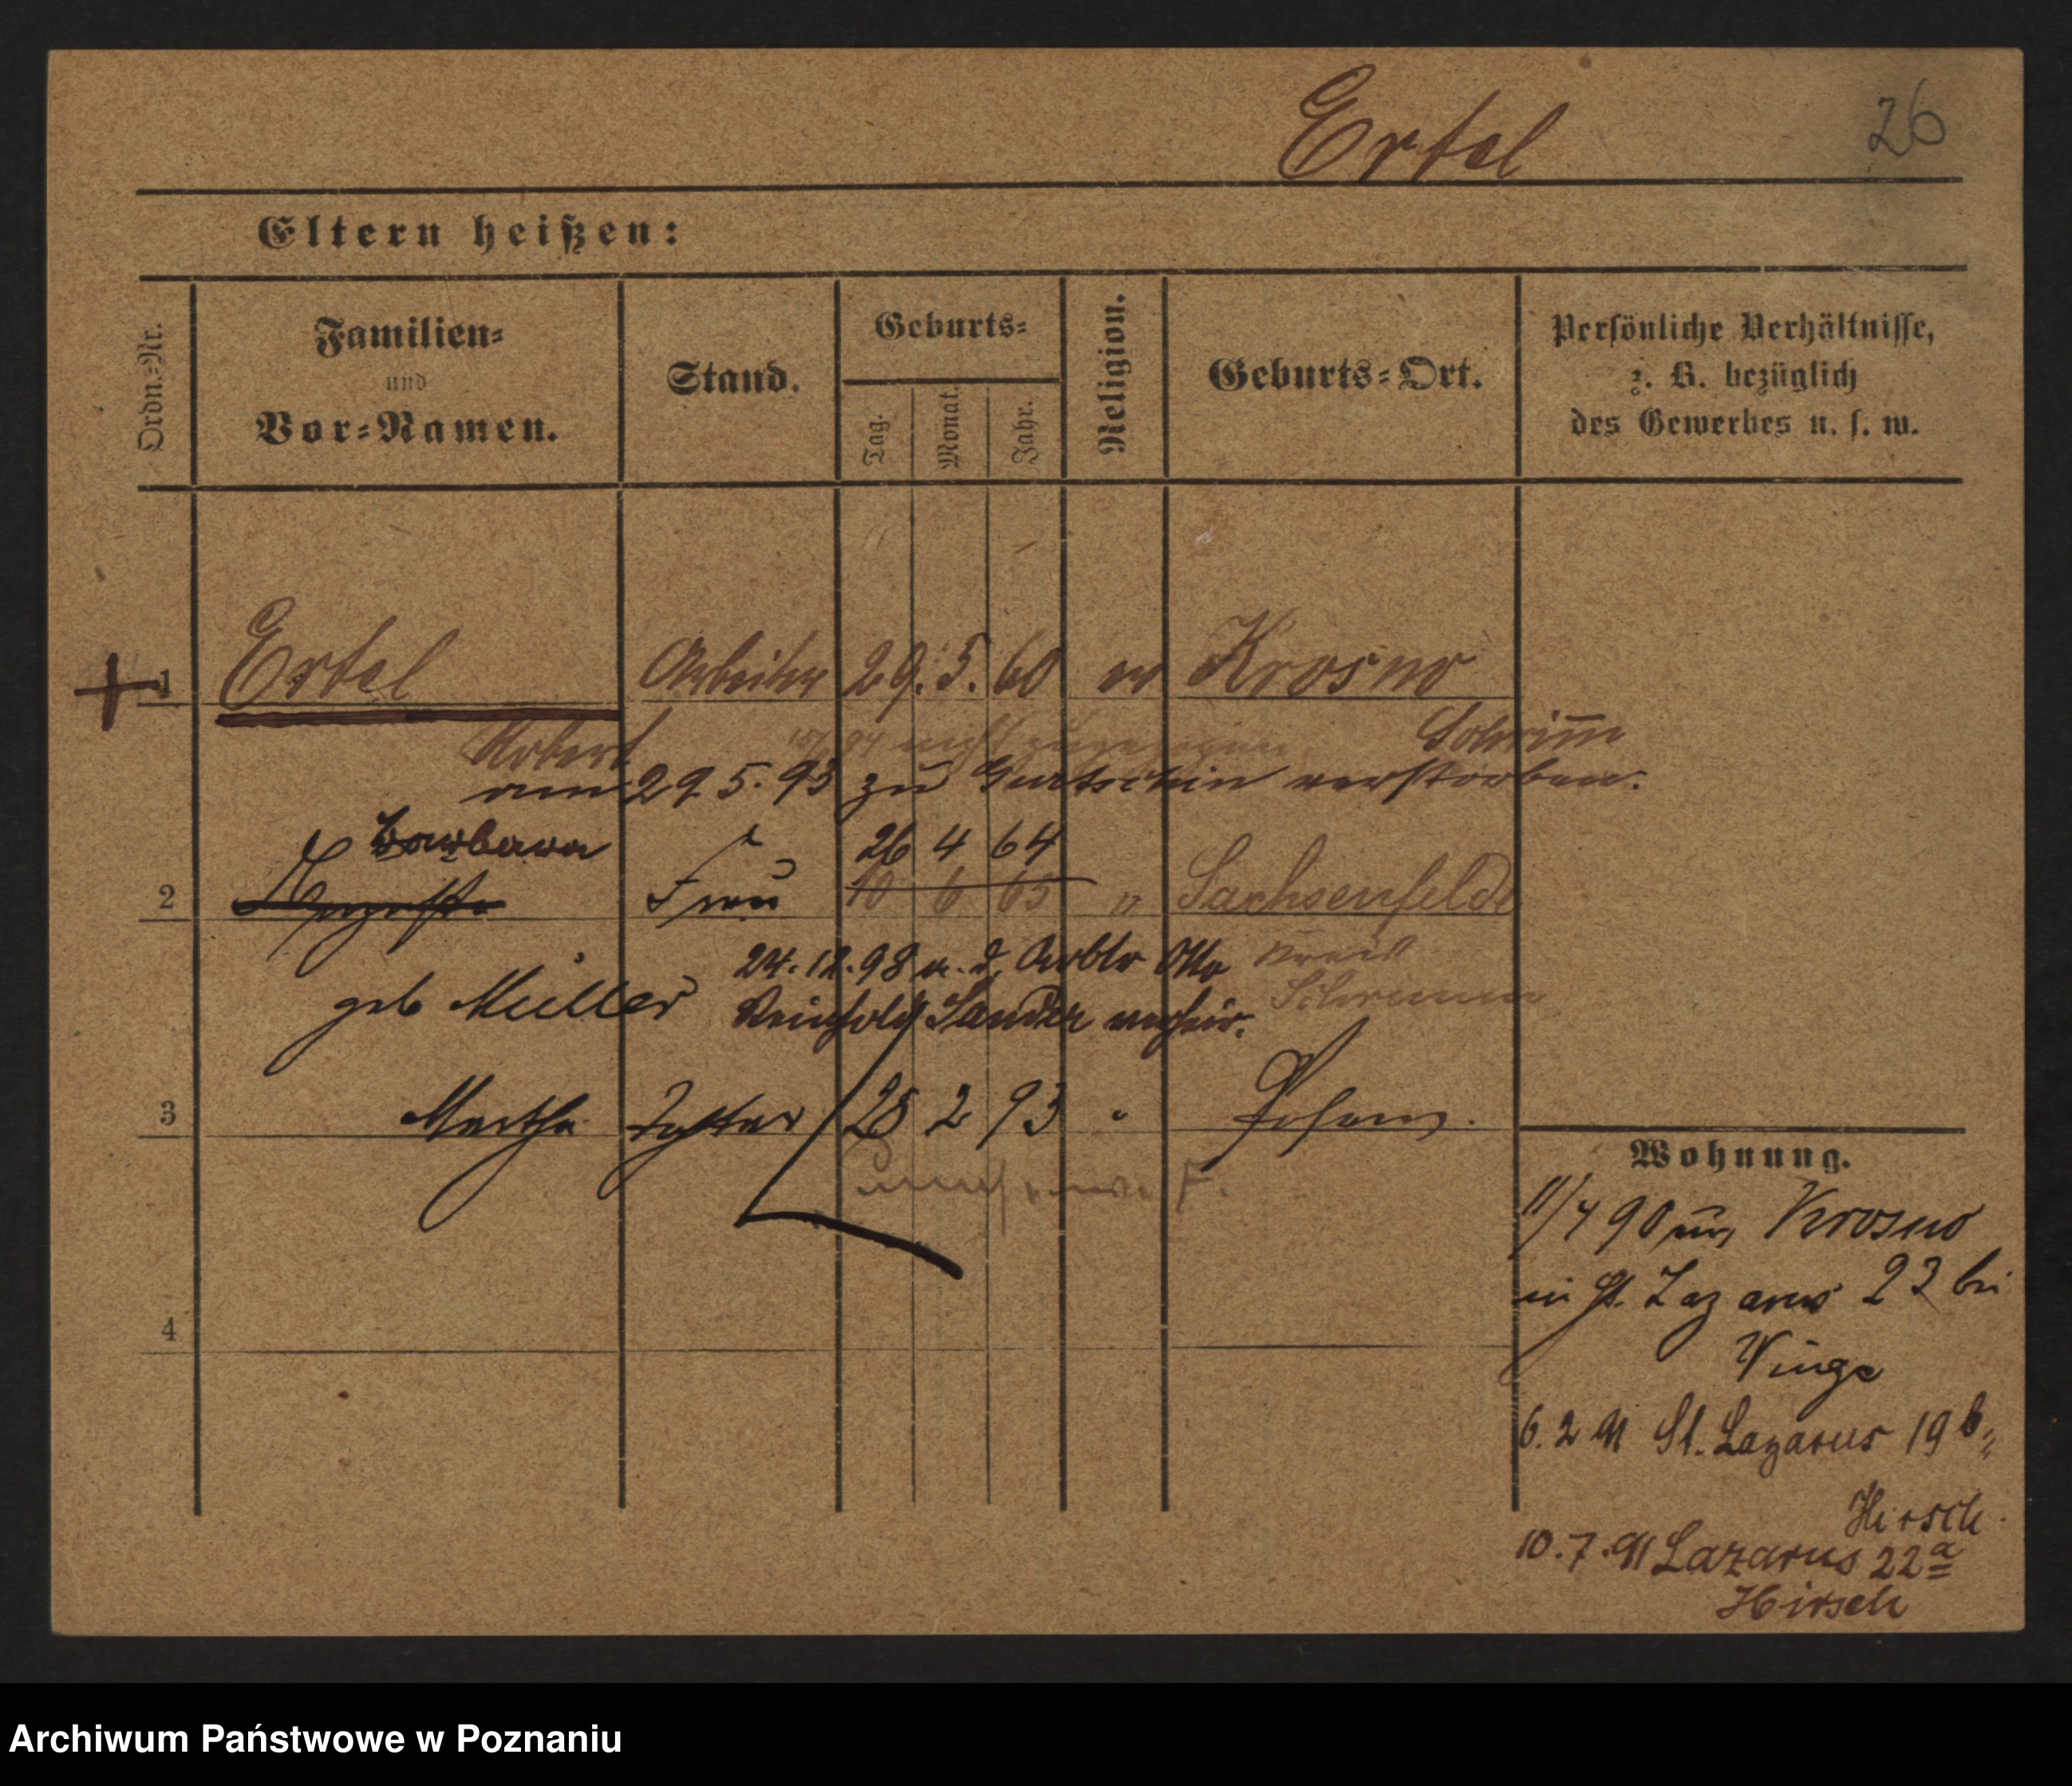 Ertel
26
Eltern heißen:
Ordn.-Nr.
Familien-
und
Vor-Namen.
Stand.
Geburts-
Tag.
Monat.
Jahr.
Religion.
Geburts-Ort.
Persönliche Verhältnisse,
z. B. bezüglich
des Gewerbes u. s. w.
1 Ertel Arbeiter 29. 5. 60 ev Krosno
Robert nicht zugezogen Schrim̄
am 29 5. 93 zu Gurtschin verstorben.
Barbara 26 4 64
2 Auguste Frau 10 6 65 " Sachsenfelde
24. 12. 98 m. d. Arbtr Otto Kreis
geb Müller Schrimm
Reinhold Sander verheir.
3 Martha Tochter 28 2 93 " Posen.
4
Wohnung.
11/4 90 Krosno
in St. Lazarus 23 bei
Winge
6. 2 91 St. Lazarus 19 b.
Hirsch
10. 7. 91 Lazarus 22 a
Hirsch
Archiwum Państwowe w Poznaniu